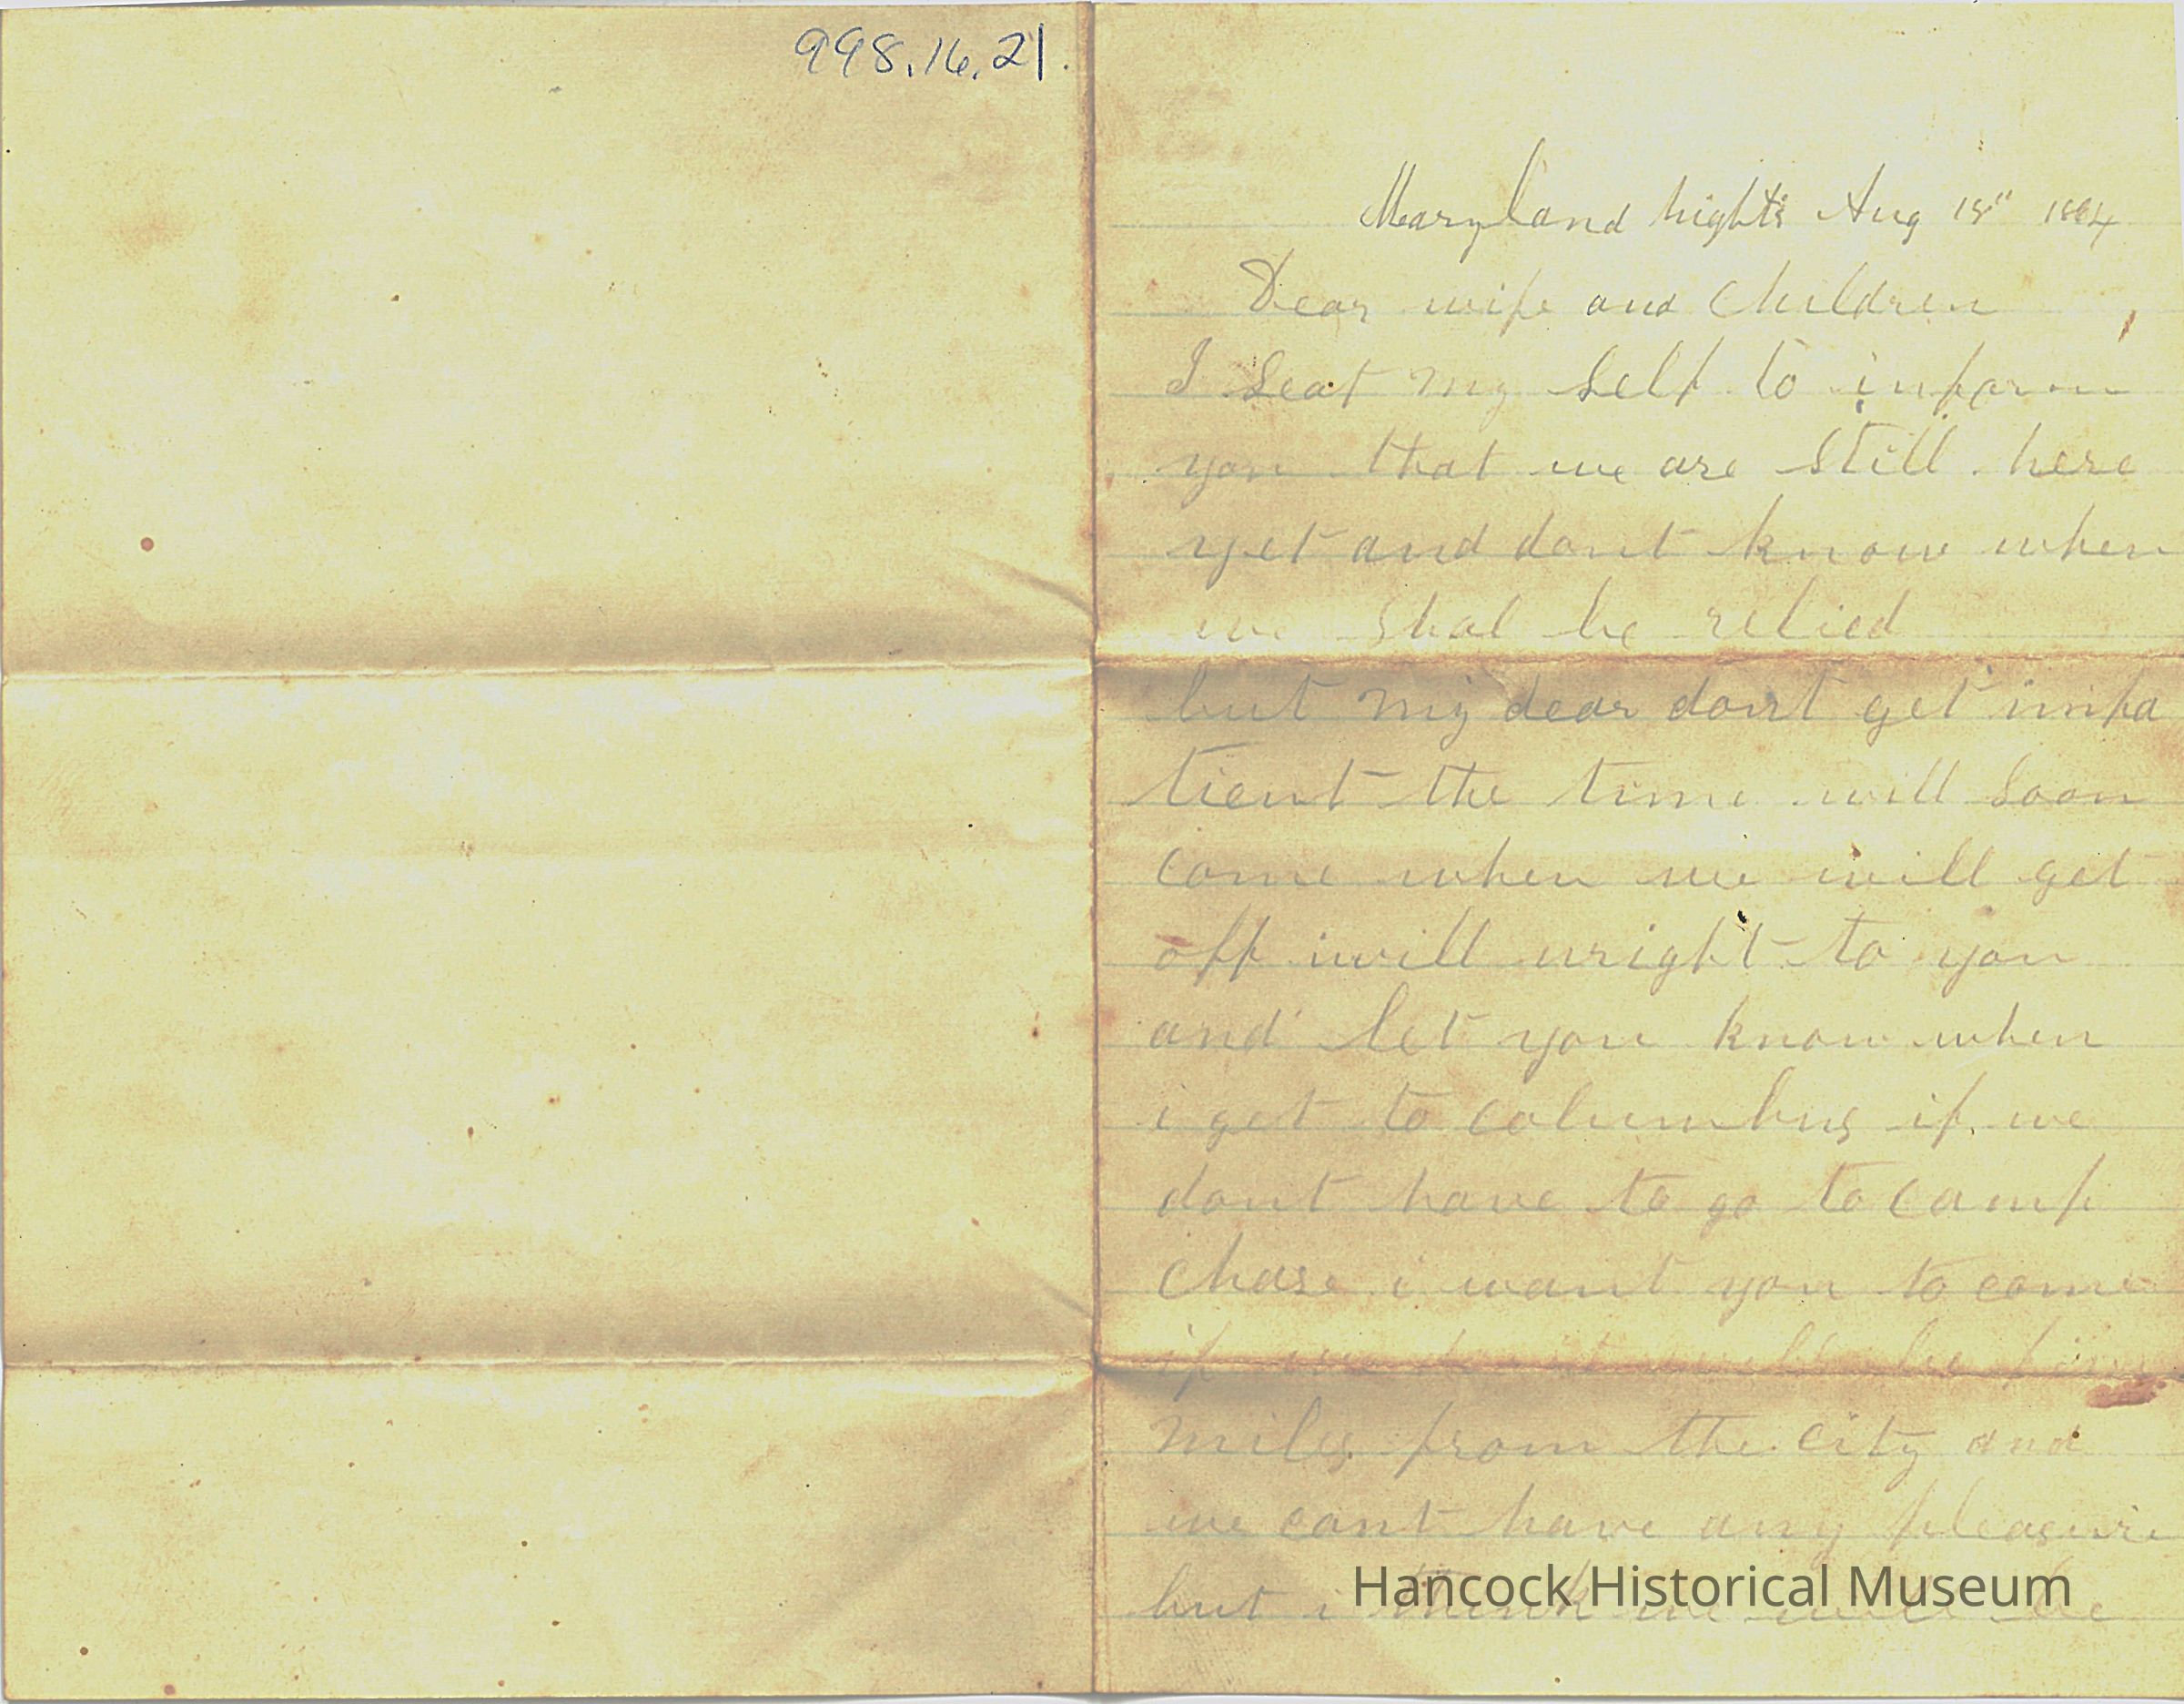 998.16.21.
Maryland hights Aug 18" 1864
Dear wife and Children
I Seat my Self to inform
you that we are Still here
yet and dont know when
we shal be relied
but my dear dont get impa
tient the time will Soon
come when we will get
off i will wright to you
and let you know when
i get to columbus if we
dont have to go to camp
Chase i want you to come
if we do it will be
miles from the city and
we cant have any pleasure
but i think we will be
Hancock Historical Museum